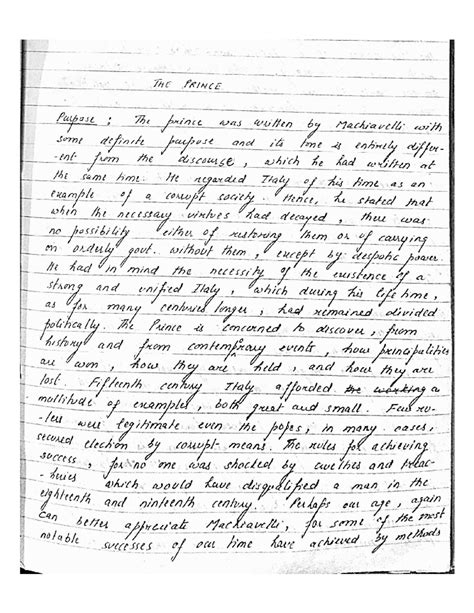 THE PRINCE
Purpose : The prince was written by Machiavelli with
some definite purpose and its tone is entirely differ-
-ent from the discourse, which he had written at
the same time. He regarded Italy of his time as an
example of a corrupt society. Hence, he stated that
when the necessary virtues had decayed, there was
no possibility either of restoring them or of carrying
on orderly govt. without them, except by despotic power.
He had in mind the necessity of the existence of a
strong and unified Italy, which during his life time,
as for many centuries longer, had remained divided
politically. The Prince is concerned to discover, from
history and from contemporary events, how principalities
are won, how they are held, and how they are
lost. Fifteenth century Italy afforded a
multitude of examples, both great and small. Few ru-
-lers were legitimate even the popes, in many cases,
secured election by corrupt means. The rules for achieving
success, for no one was shocked by cruelties and treac-
-heries which would have disqualified a man in the
eighteenth and ninteenth century. Perhaps our age, again
Can better appreciate Machiavelli, for some of the most
notable successes of our time have achieved by methods